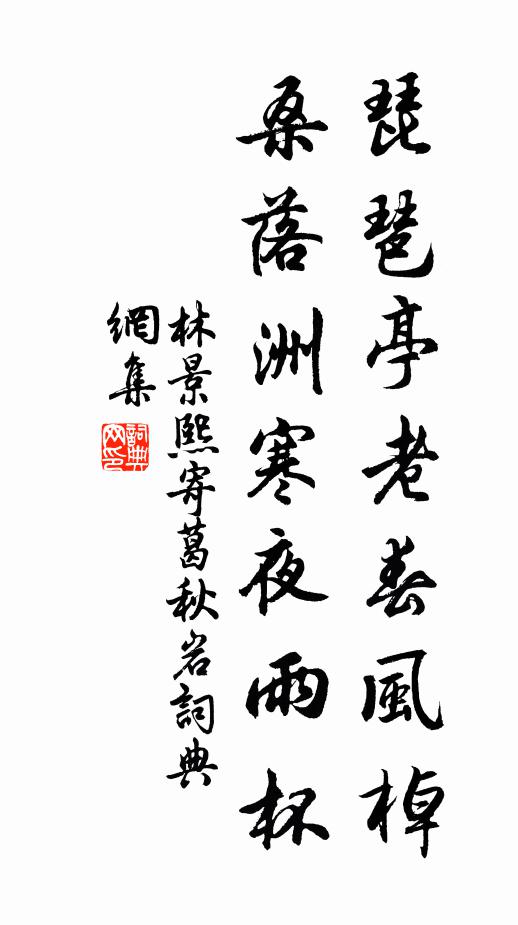 琵琶亭老春風棹
桑落洲寒夜雨杯
林景熙寄葛秋岩詞典
網集
詞典
网印